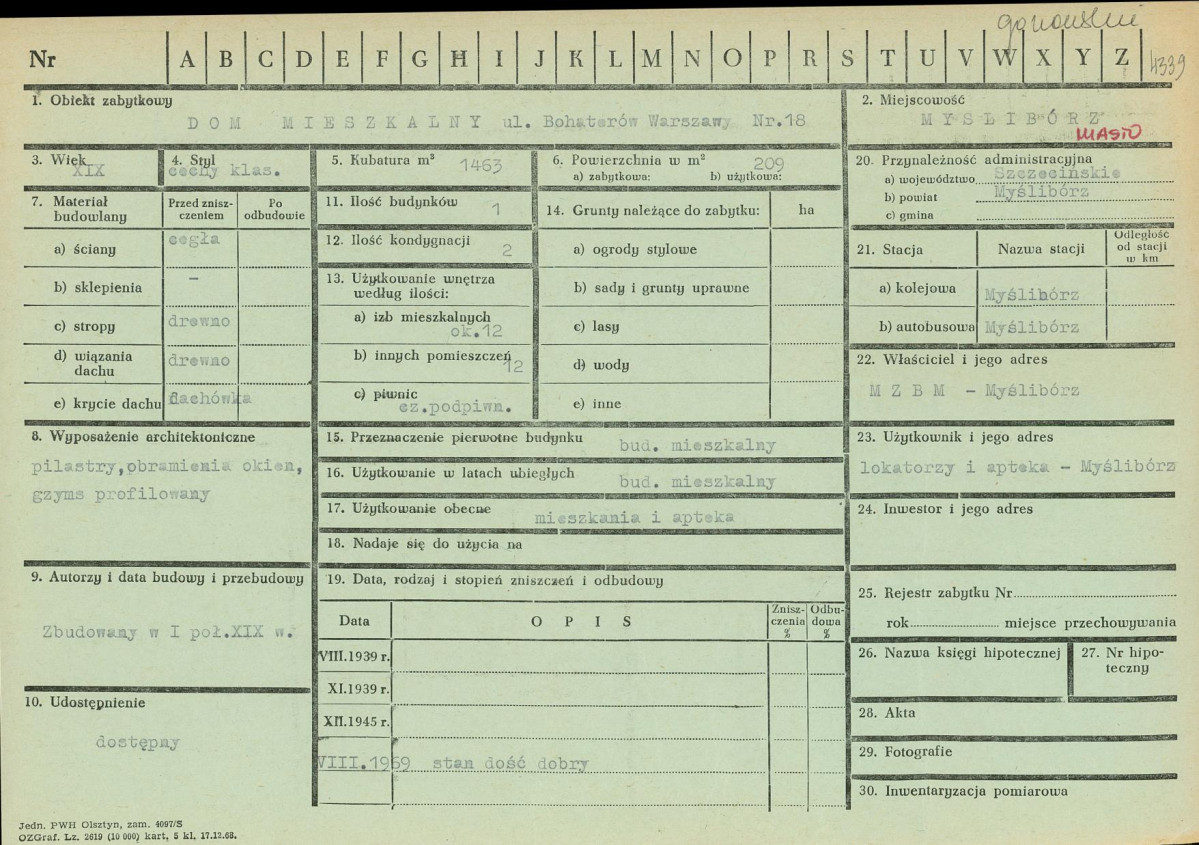 Nr A B C D E F G H I J K L M N O P R S T U V W X Y Z
4339
1. Obiekt zabytkowy
DOM MIESZKALNY ul. Bohaterów Warszawy Nr.18
2. Miejscowość
MYŚLIBÓRZ
MIASTO
3. Wiek
XIX
4. Styl
cechy klas.
5. Kubatura m³ 1463
6. Powierzchnia w m² 209
a) zabytkowa: b) użytkowa:
20. Przynależność administracyjna
a) województwo Szczecińskie
b) powiat Myślibórz
c) gmina
7. Materiał budowlany
Przed zniszczeniem
Po odbudowie
a) ściany cegła
b) sklepienia –
c) stropy drewno
d) wiązania dachu drewno
e) krycie dachu dachówka
11. Ilość budynków 1
12. Ilość kondygnacji 2
13. Użytkowanie wnętrza
według ilości:
a) izb mieszkalnych
ok.12
b) innych pomieszczeń
12
c) piwnic
cz.podpiwn.
14. Grunty należące do zabytku: ha
a) ogrody stylowe
b) sady i grunty uprawne
c) lasy
d) wody
e) inne
21. Stacja Nazwa stacji
Odległość od stacji w km
a) kolejowa Myślibórz
b) autobusowa Myślibórz
22. Właściciel i jego adres
M Z B M - Myślibórz
8. Wyposażenie architektoniczne
pilastry,obramienia okien,
gzyms profilowany
15. Przeznaczenie pierwotne budynku bud. mieszkalny
16. Użytkowanie w latach ubiegłych bud. mieszkalny
17. Użytkowanie obecne mieszkania i apteka
18. Nadaje się do użycia na
23. Użytkownik i jego adres
lokatorzy i apteka - Myślibórz
24. Inwestor i jego adres
9. Autorzy i data budowy i przebudowy
Zbudowany w I poł.XIX w.
10. Udostępnienie
dostępny
19. Data, rodzaj i stopień zniszczeń i odbudowy
Data OPIS
Zniszczenia %
Odbudowa %
VIII.1939 r.
XI.1939 r.
XII.1945 r.
VIII.1969 stan dość dobry
25. Rejestr zabytku Nr
rok miejsce przechowywania
26. Nazwa księgi hipotecznej
27. Nr hipoteczny
28. Akta
29. Fotografie
30. Inwentaryzacja pomiarowa
Jedn. PWH Olsztyn, zam. 4097/S
OZGraf. Lz. 2619 (10 000) kart, 5 kl, 17.12.68.